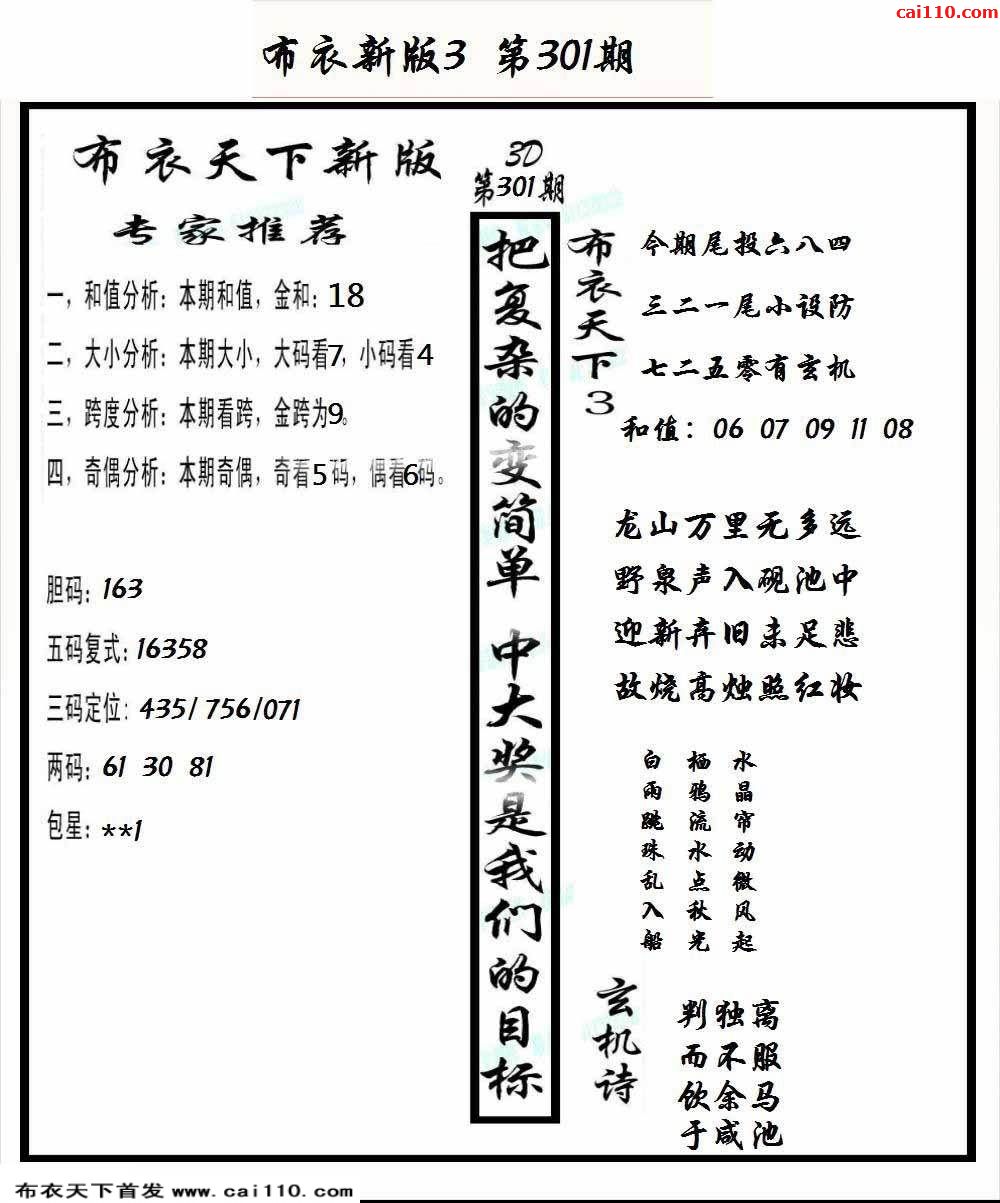 cai110.com
布衣新版3 第301期
布衣天下新版
专家推荐
一，和值分析：本期和值，金和：18
二，大小分析：本期大小，大码看7，小码看4
三，跨度分析：本期看跨，金跨为9。
四，奇偶分析：本期奇偶，奇看5码，偶看6码。
胆码：163
五码复式：16358
三码定位：435/ 756/071
两码：61 30 81
包星：**1
3D
第301期
把复杂的变简单 中大奖是我们的目标
布衣天下3
今期尾投六八四
三二一尾小设防
七二五零有玄机
和值： 06 07 09 11 08
龙山万里无多远
野泉声入砚池中
迎新弃旧未足悲
故烧高烛照红妆
水晶帘动微风起
栖鸦流水点秋光
白雨跳珠乱入船
玄机诗
判独离
而不服
饮余马
于咸池
布衣天下首发 www.cai110.com